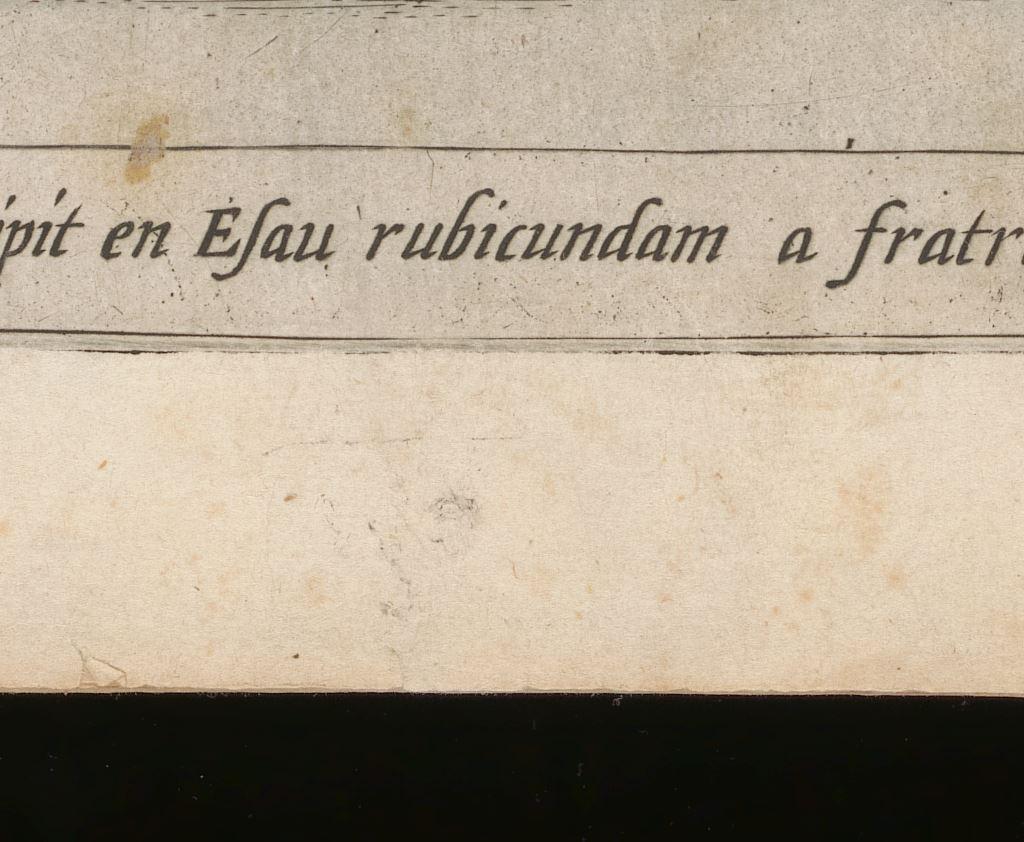 ipit en Eſau rubicundam a fratri